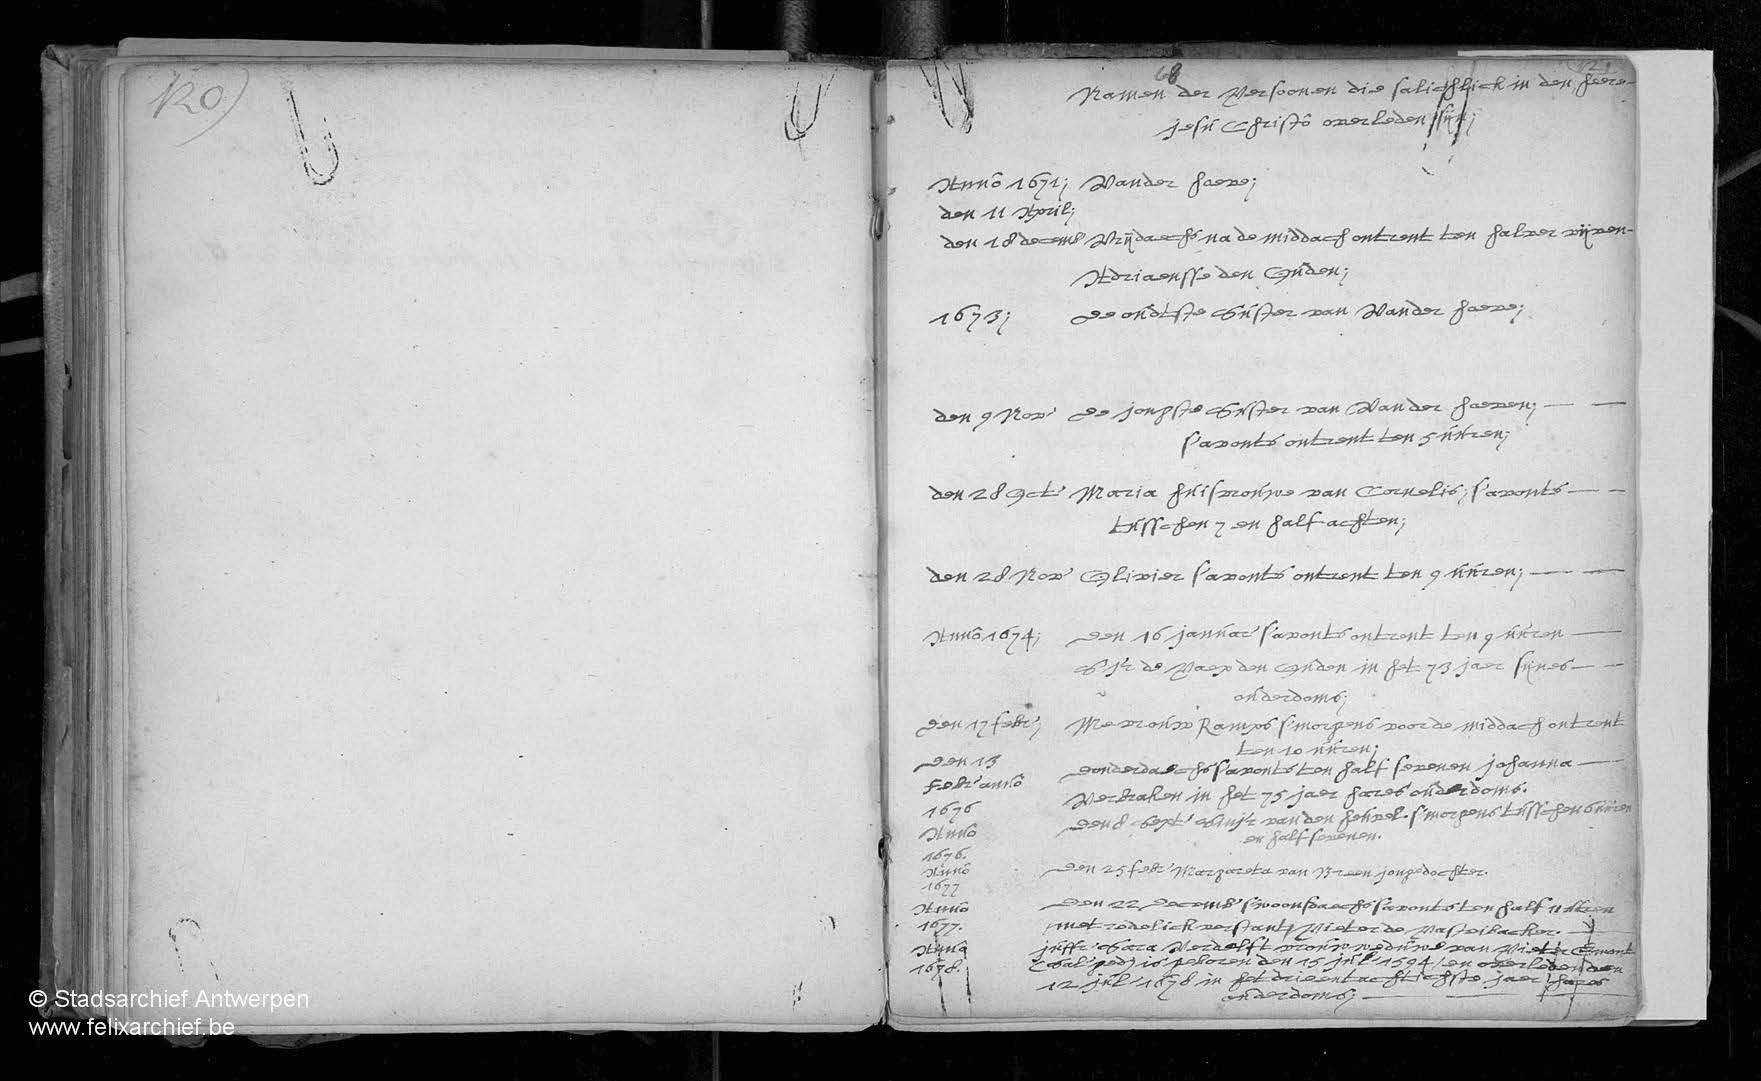 120)
68
Namen der Persoonen die salichlick in den heere
jesu Christo overleden sijn;
Anno 1671; Vander hoeve;
den 11 April;
den 18 decemb vrijdaechs na de middach ontrent ten halver vijven
Adriaensse den Ouden;
1673; De oudtste suster van Vander hoeve;
den 9 Nov De jongste suster van Vander hoeven;
s'avonts ontrent ten 5 uuren;
den 28 Oct Maria huisvrouwe van Cornelis; s'avonts
tusschen 7 en half achten;
den 28 Nov Olivier s'avonts ontrent ten 9 uuren;
Anno 1674; den 16 januar s'avonts ontrent ten 9 uuren
Sr de Paep den Ouden in het 73 jaer sijnes
ouderdoms;
den 17 febr; Mevrouw Ramps s'morgens voor de middach ontrent
ten 10 uuren;
den 13 donderdaechs s'avonts ten half sevenen johanna
Febr anno Verbraken in het 75 jaer hares ouderdoms.
1676
Anno den 8 Sept Sinjr van den heuvel. s'morgens tusschen 6 uuren
en half sevenen.
1676.
Anno den 25 febr Margareta van Breen jongedochter.
1677
Anno den 22 decemb s'woonsdaechs s'avonts ten half 11 uuren
1677. met redelick verstant, Pieter de Pasteibacker.
Anno juffr Sara Verdelft vrouw weduwe van Pieter
1678. (Sal: ged) is geboren den 15 jul 1594, en overleden den
12 jul 1678 in het drientachtichste jaer hares
ouderdoms;
© Stadsarchief Antwerpen
www.felixarchief.be